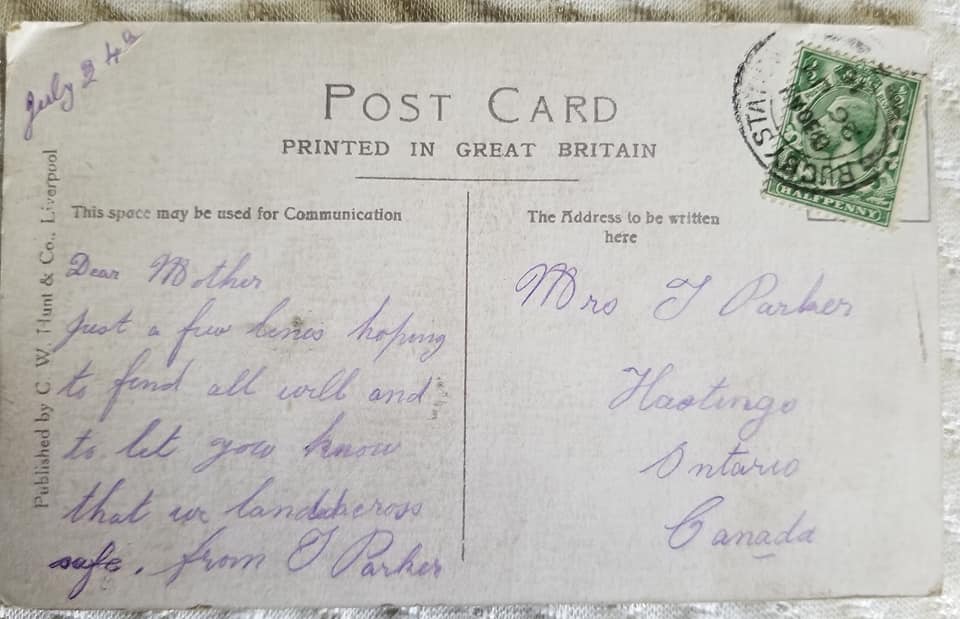 July 24th
POST CARD
PRINTED IN GREAT BRITAIN
Published by C. W. Hunt & Co., Liverpool
This space may be used for Communication
Dear Mother
Just a few lines hoping
to find all well and
to let you know
that we landed across
safe. from T Parker
The Address to be written
here
Mrs T Parker
Hastings
Ontario
Canada
RUGBY ST
HALFPENNY